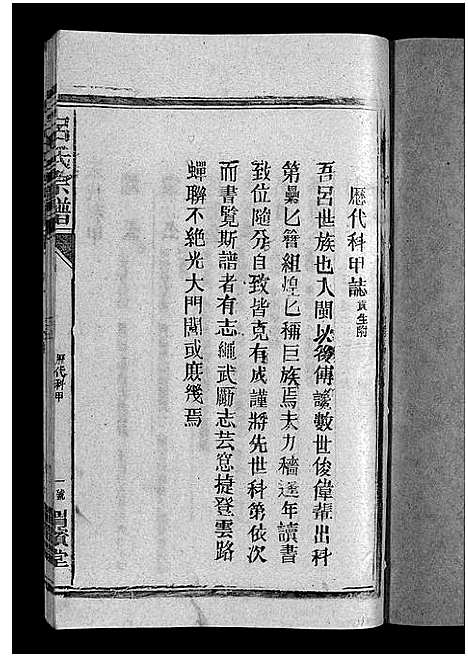 歷代科甲誌 貢生附
吾呂世族也入閩以後傳讀數世俊偉輩出科
第纍匕簪組煌匕稱巨族焉夫力穡逢年讀書
致位隨分自致皆克有成謹將先世科第依次
而書覽斯譜者有志繩武勵志芸窓捷登雲路
蟬聯不絕光大門閭或庶幾焉
呂氏宗譜
歷代科甲
一號
渭濱堂